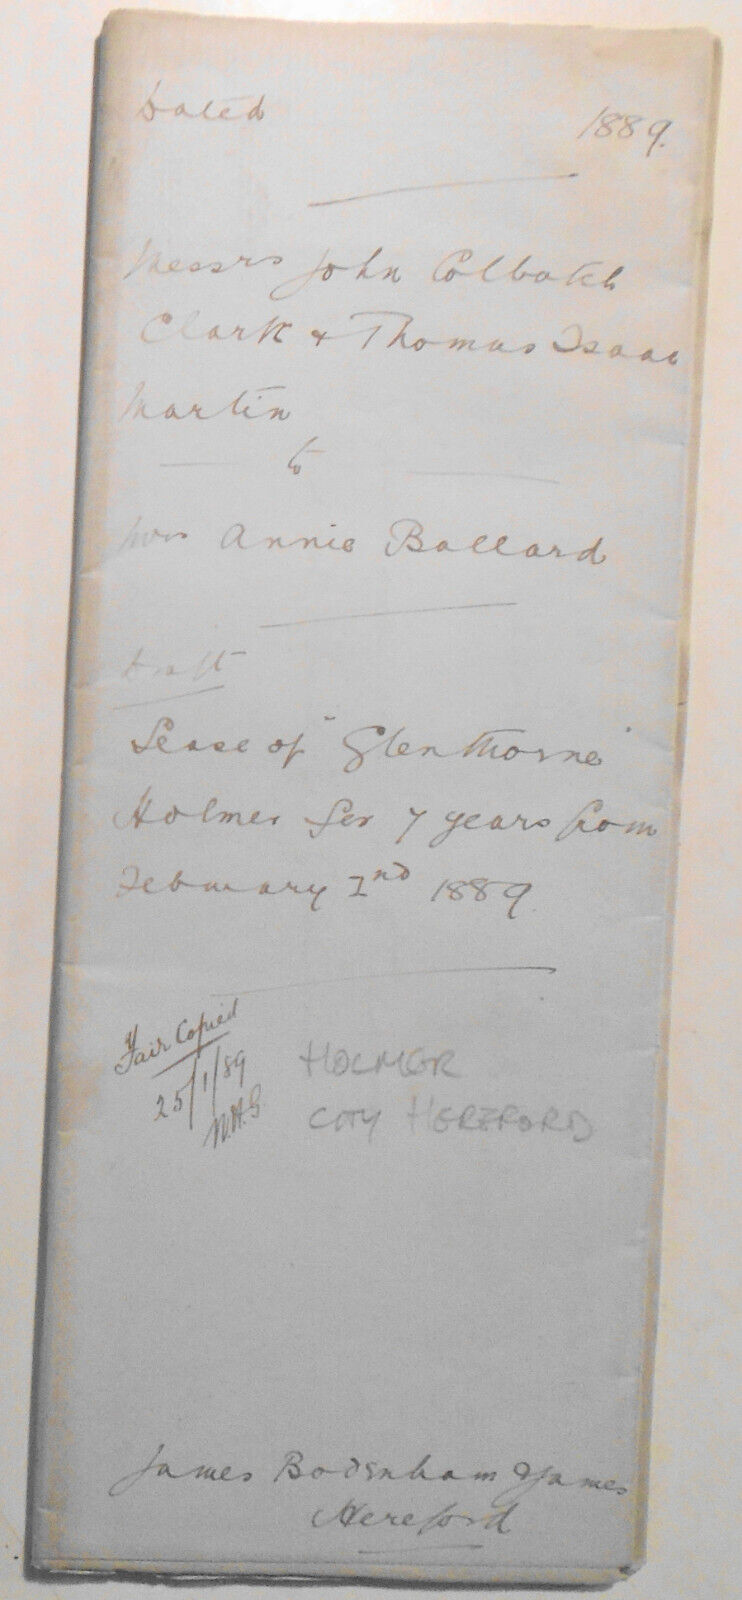 Dated 1889.
Messrs John Colbatch
Clark & Thomas Isaac
Martin
to
Mrs Annie Ballard
Draft
Lease of "Glenthorne"
Holmer for 7 years from
February 2nd 1889.
Fair Copied
25/1/89
HOLMER
CITY HEREFORD
James Bodenham & James
Hereford